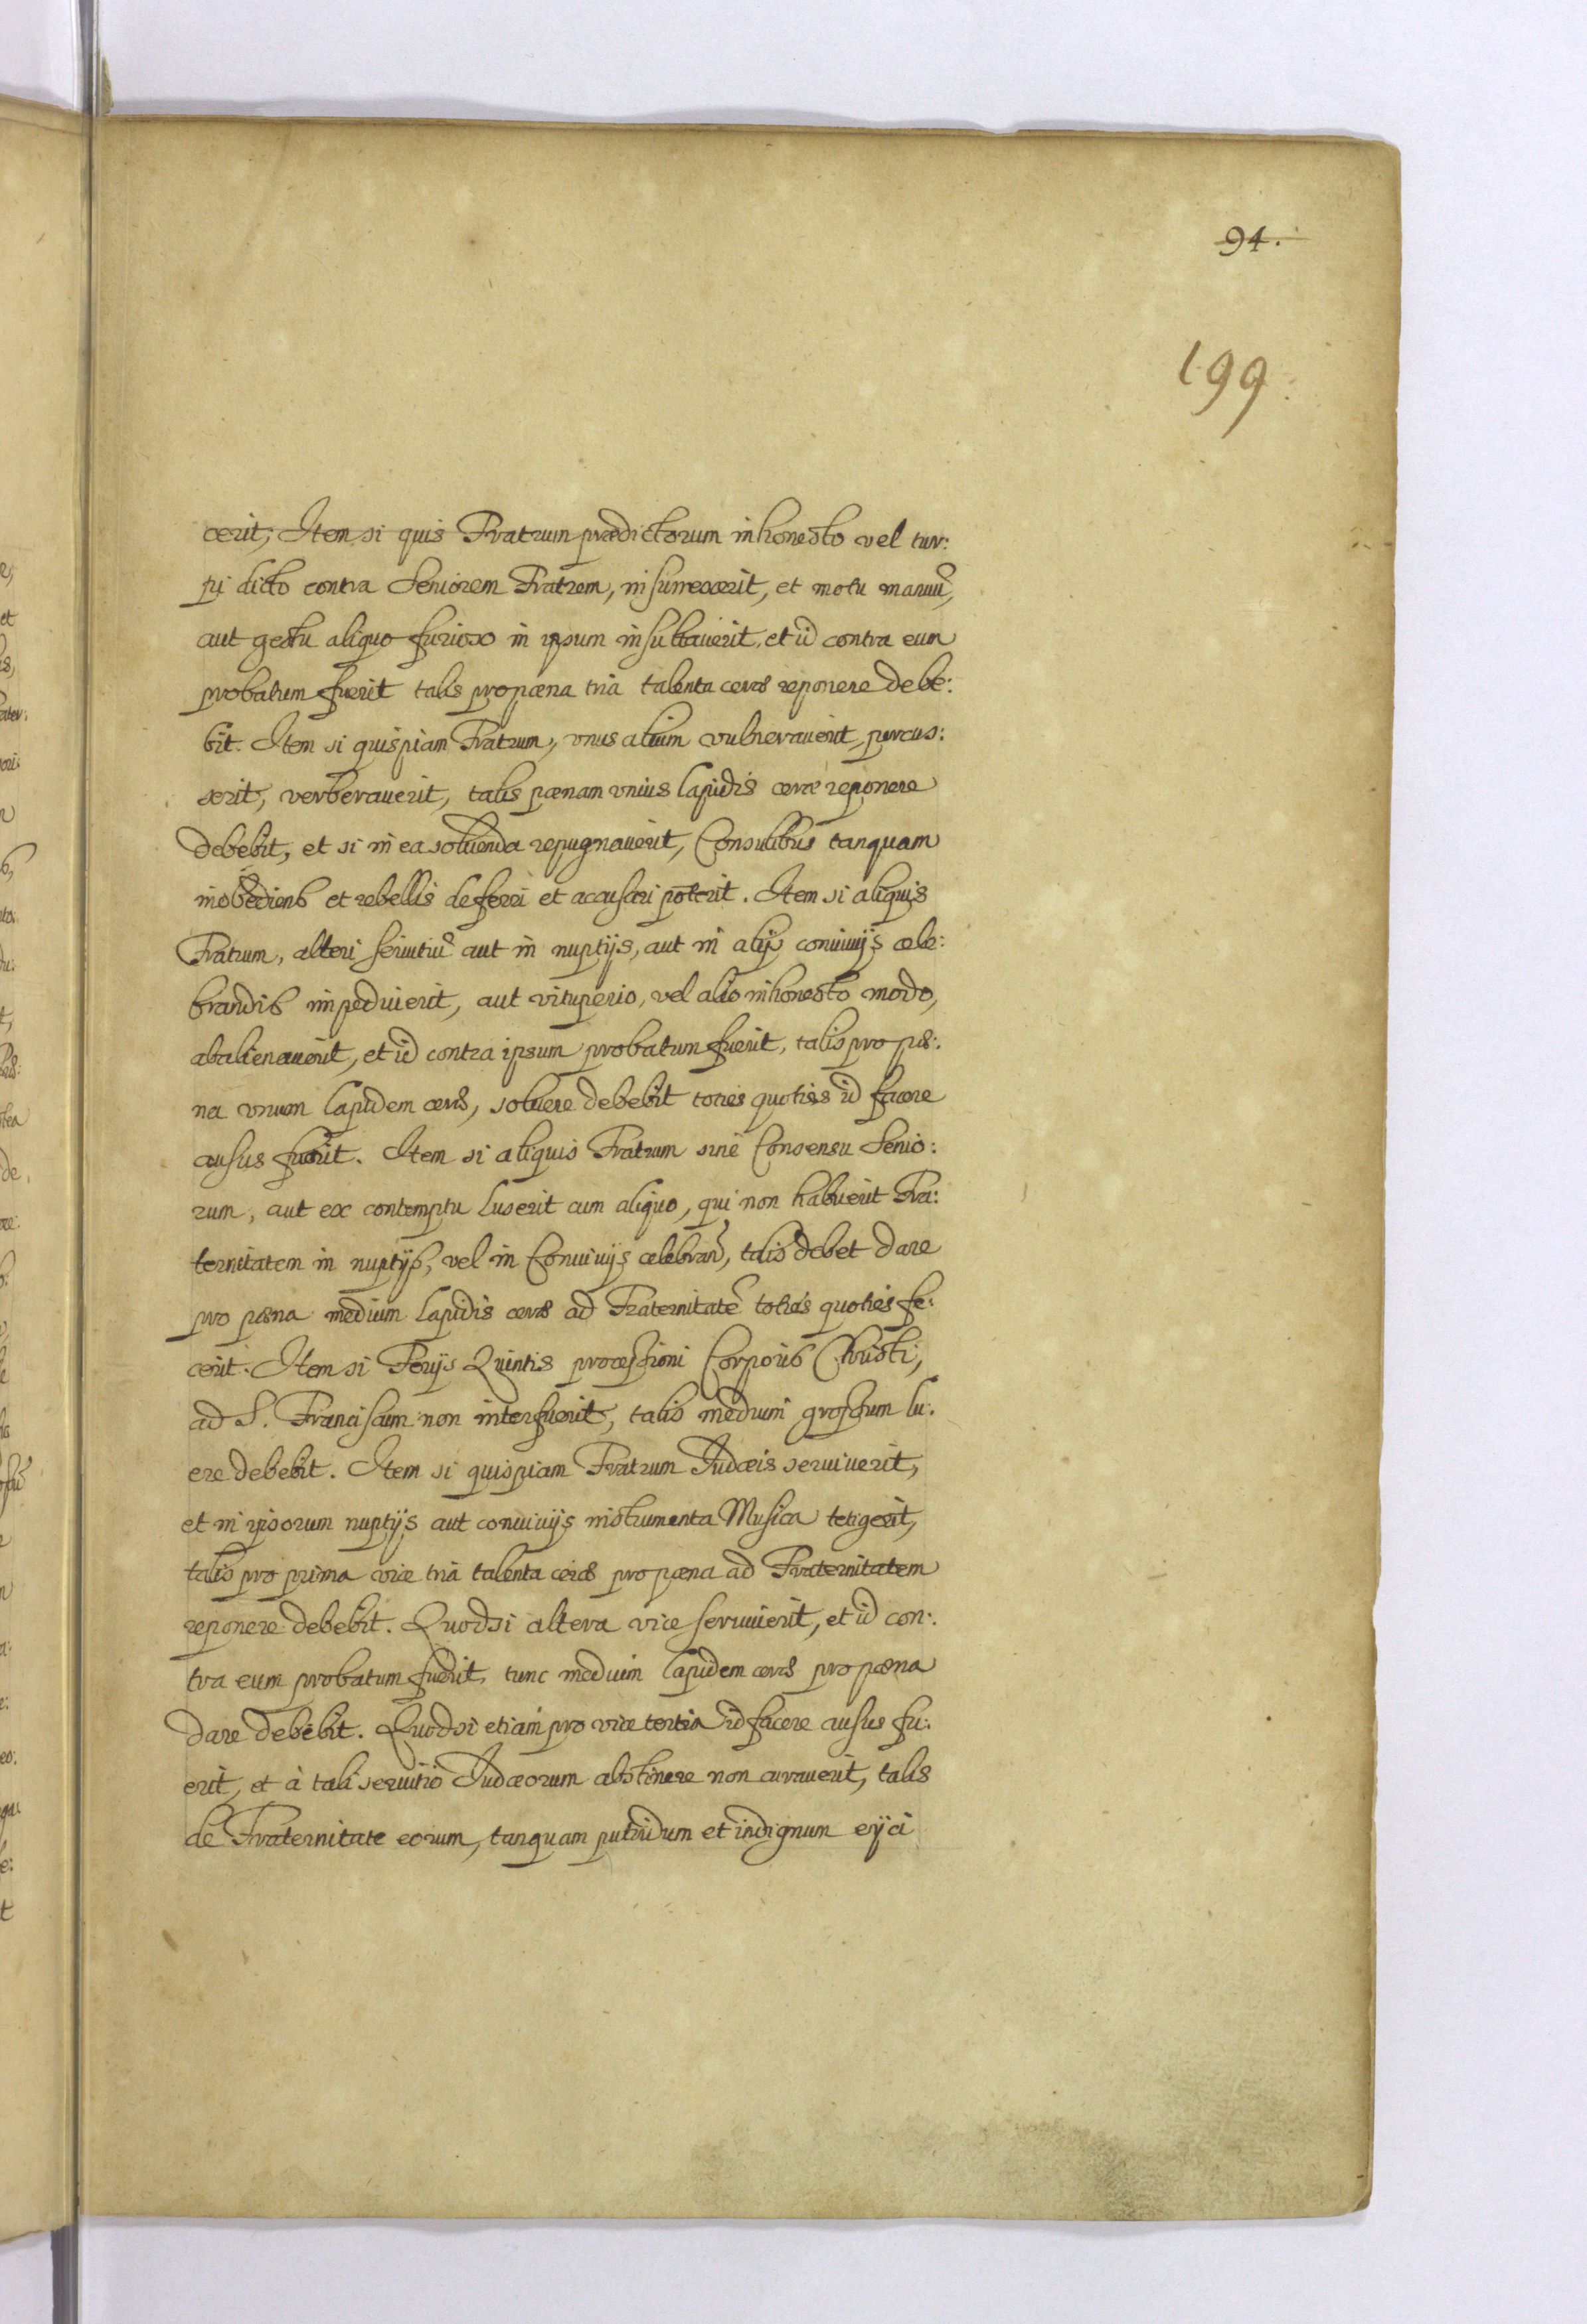 94.
199.
cerit; Item si quis Fratrum prædictorum inhonesto vel tur:
pi dicto contra Seniorem Fratrem, insurrexerit, et motu manuũ,
aut gestu aliquo furioso in ipsum insultauerit, et id contra eum
probatum fuerit talis pro pæna tria talenta ceræ reponere debe:
bit. Item si quispiam Fratrum, vnus alium vulnerauerit, percus:
serit, verberauerit, talis pænam vnius lapidis ceræ reponere
debebit, et si in ea soluenda repugnauerit, Consulibus tanquam
inobediens et rebellis deferri et accusari poterit. Item si aliquis
Fratrum, alteri seruitiũ aut in nuptijs, aut in alijs conuiuijs cele:
brandis impediuerit, aut vituperio, vel alio inhonesto modo,
abalienauerit, et id contra ipsum probatum fuerit, talis pro pæ:
na vnum lapidem ceræ, soluere debebit toties quoties id facere
ausus fuerit. Item si aliquis Fratrum sine Consensu Senio:
rum, aut ex contemptu luserit cum aliquo, qui non habuerit Fra:
ternitatem in nuptijs, vel in Conuiuijs celebran̄, talis debet dare
pro pæna medium lapidis ceræ ad Fraternitatẽ toties quoties fe:
cerit. Item si Ferijs Quintis processioni Corporis Christi,
ad S. Franciscum non interfuerit, talis medium grossum lu:
ere debebit. Item si quispiam Fratrum Judæis seruiuerit,
et in ipsorum nuptijs aut conuiuijs instrumenta Musica tetigerit,
talis pro prima vice tria talenta ceræ pro pæna ad Fraternitatem
reponere debebit. Quodsi altera vice seruiuerit, et id con:
tra eum probatum fuerit, tunc medium lapidem ceræ pro pæna
dare debebit. Quodsi etiam pro vice tertia id facere ausus fu:
erit, et à tali seruitio Judæorum abstinere non curauerit, talis
de Fraternitate eorum, tanquam putridum et indignum eijci